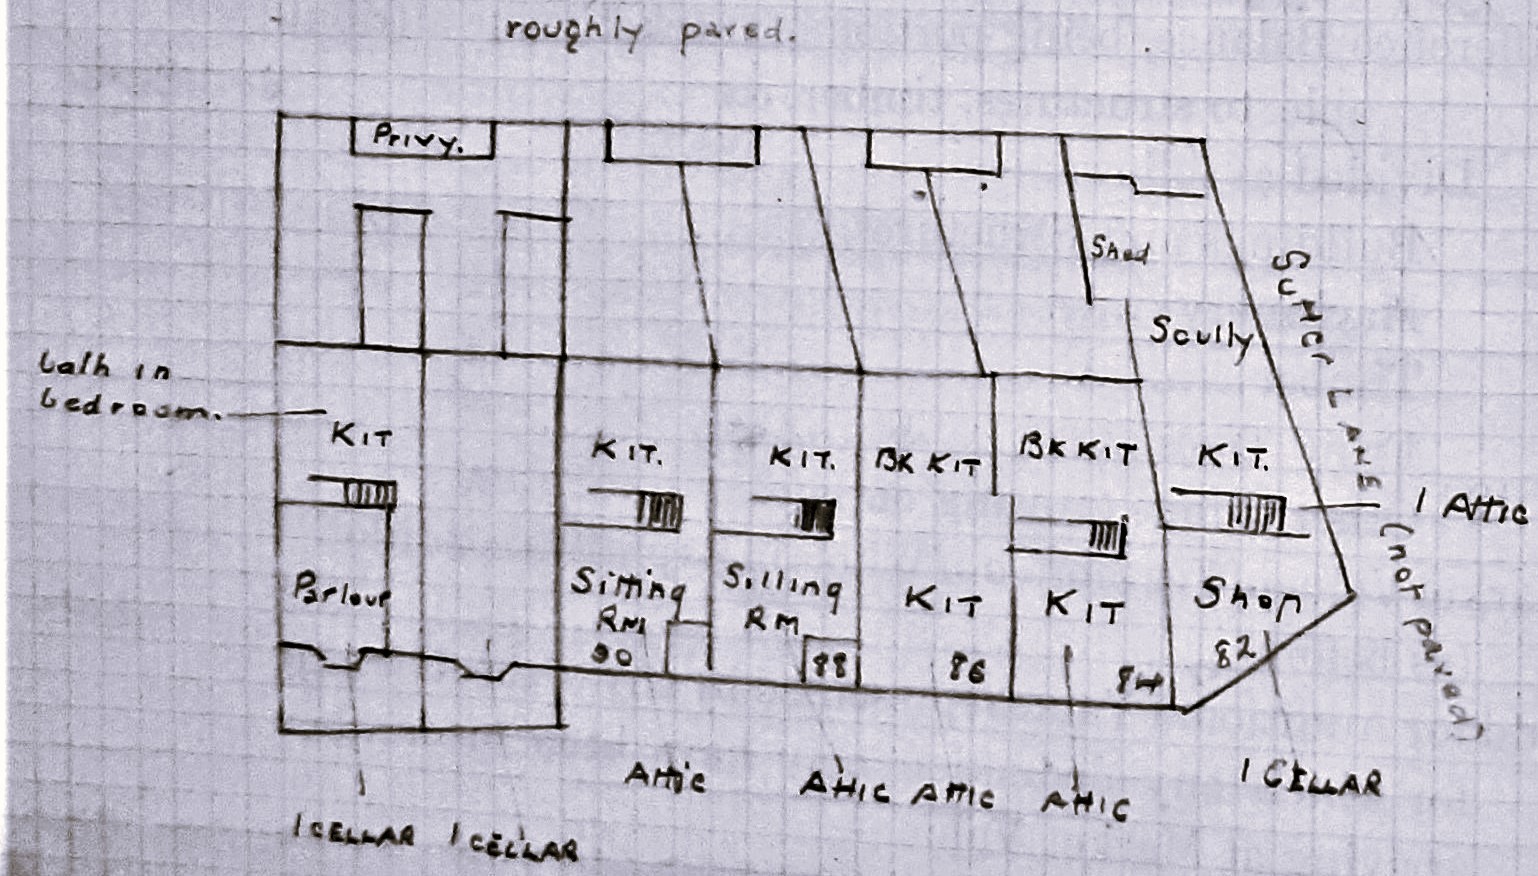 roughly paved.
Privy.
Shed
Scully
bath in
bedroom.
KIT
KIT.
KIT.
BK KIT
BK KIT
KIT.
1 Attic
Parlour
Sitting
RM
90
Sitting
RM
88
KIT
86
KIT
84
Shop
82
LANE
(not paved)
Attic
Attic
Attic
Attic
1 CELLAR
1 CELLAR
1 CELLAR